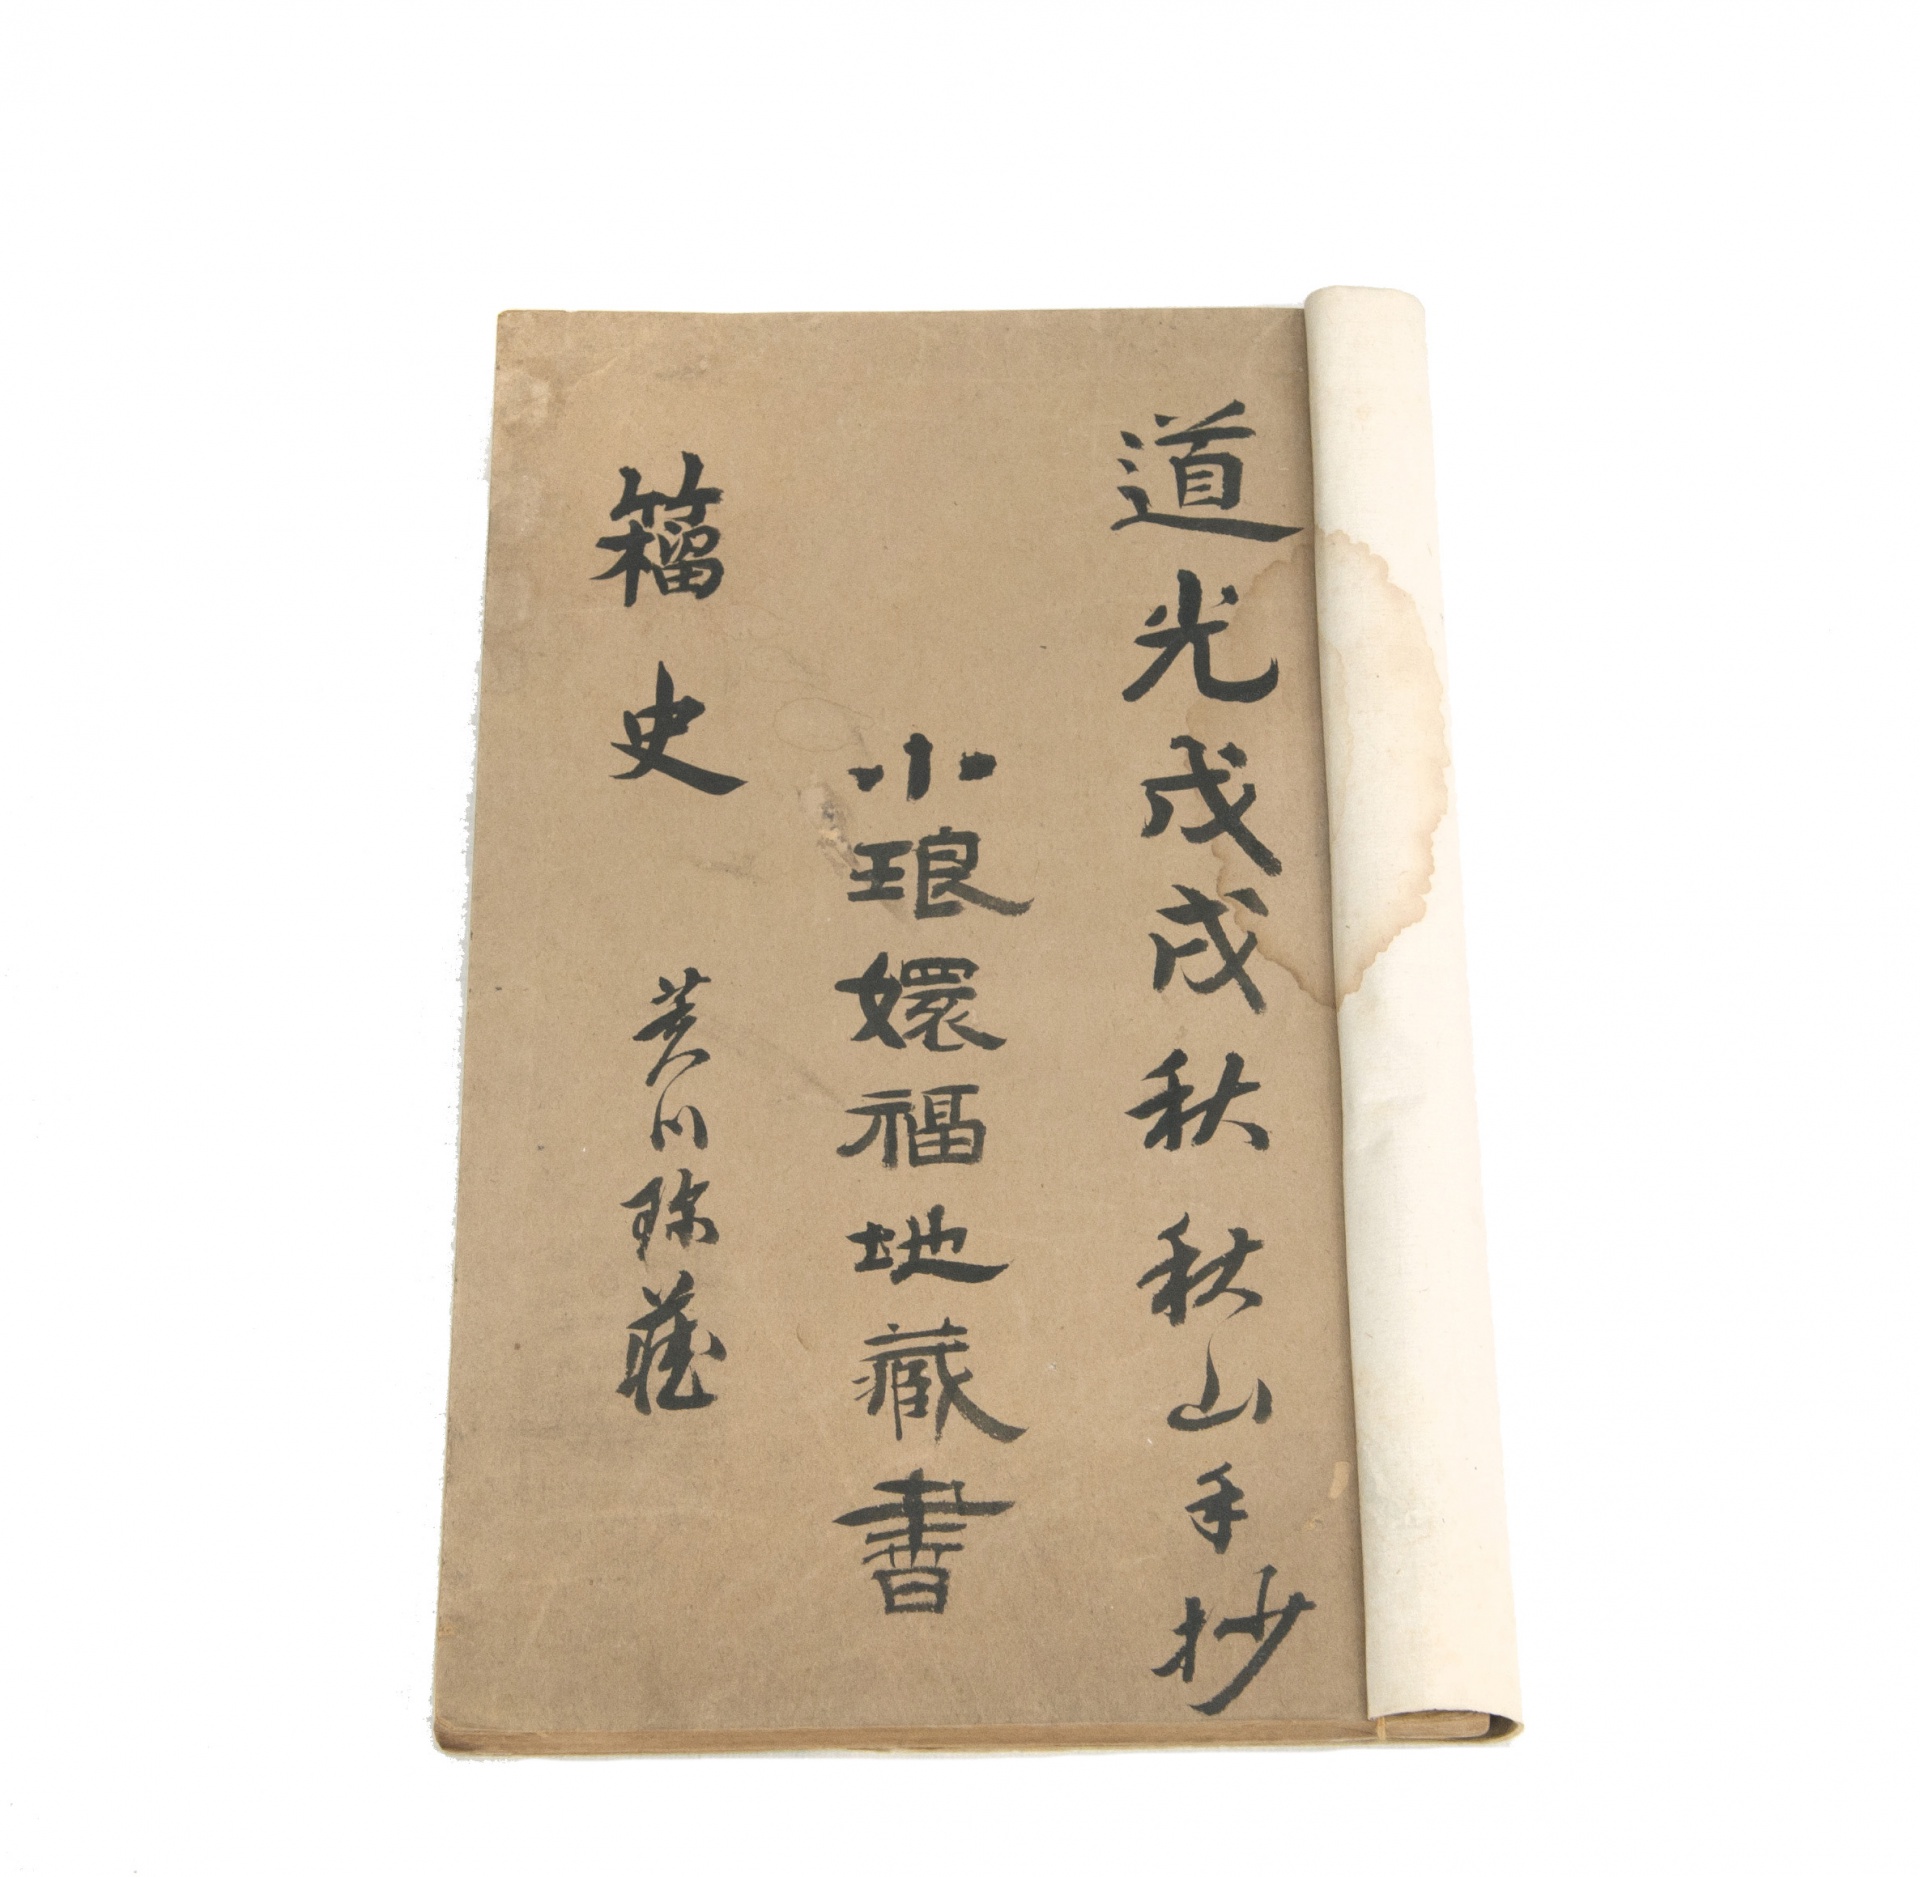 道光戊戌秋秋山手抄
小琅嬛福地藏書
籀史 芙川珍藏